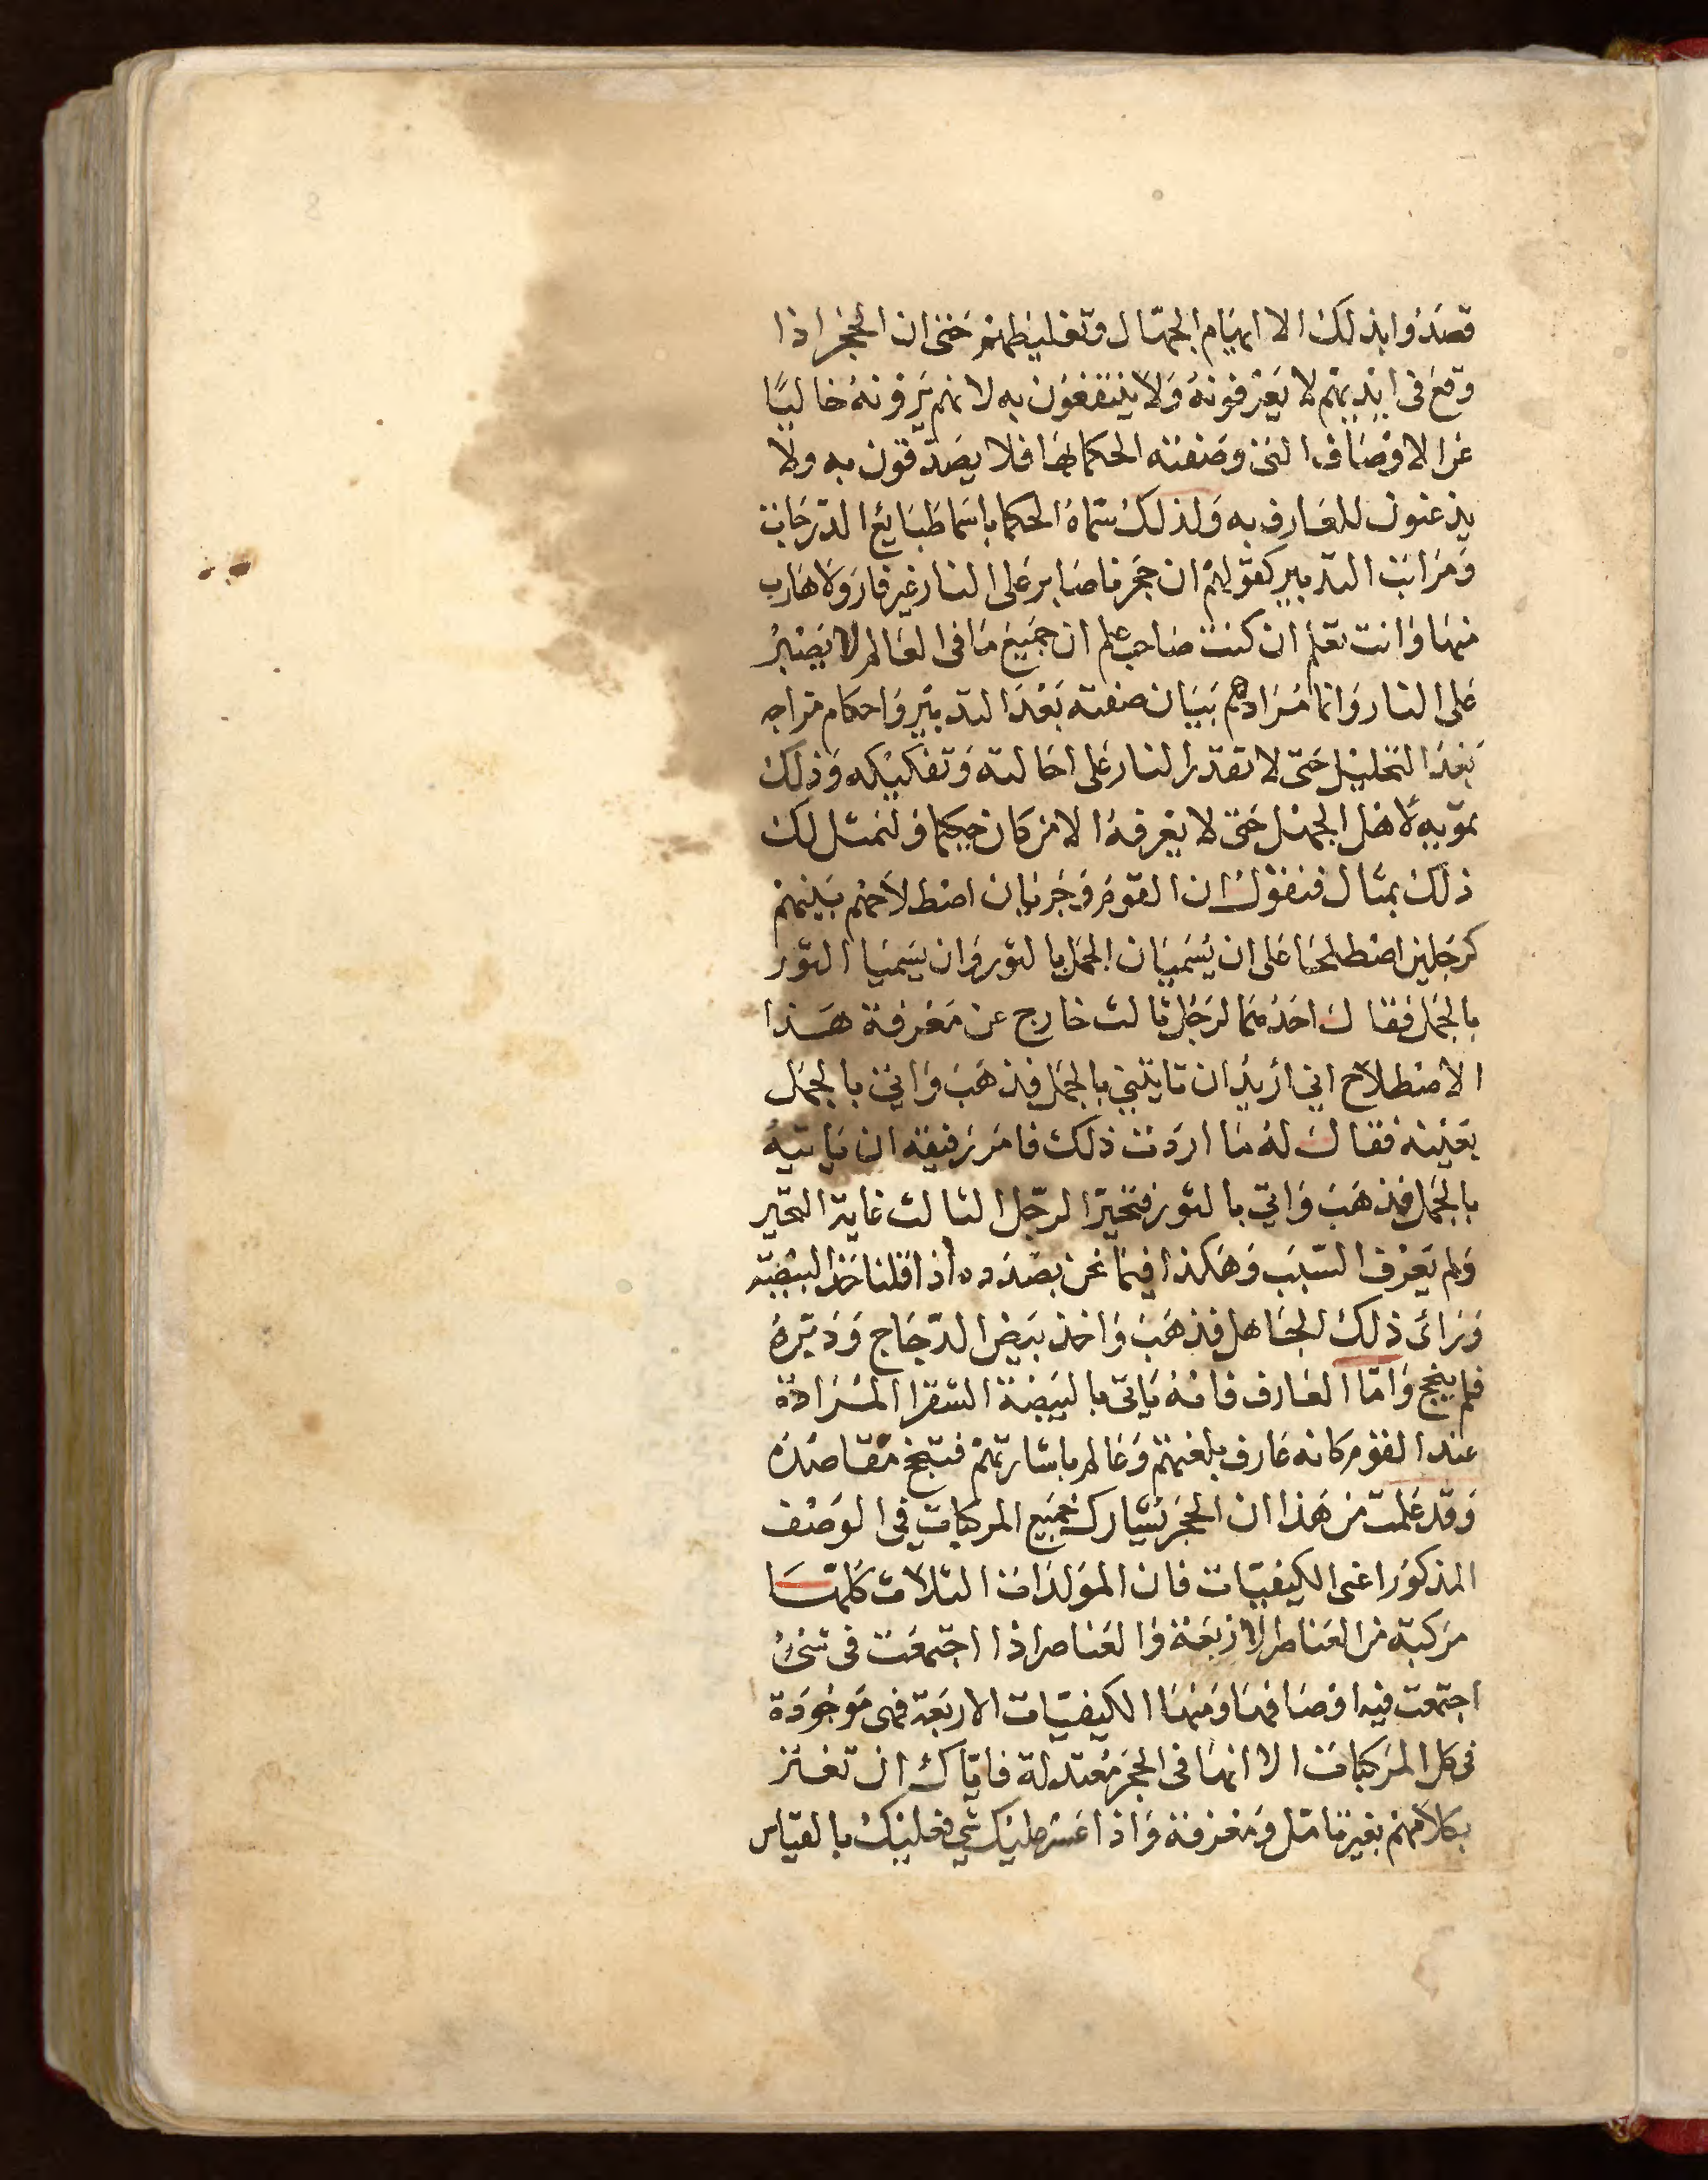 قصدوا بذلك الا ايهام الجهال وتغليطهم حتى ان الحجر اذا
وقع في ايديهم لا يعرفونه ولا ينتفعون به لانهم يرونه خاليا
عن الاوصاف التى وصفته الحكما بها فلا يصدقون به ولا
يذعنون للعارف به ولذلك سماه الحكما باسما طبايع الدرجات
ومراتب التدبير كقولهم ان حجرنا صابر على النار غير فار ولا هارب
منها وانت تعلم ان كنت صاحب علم ان جميع ما فى العالم لا يصبر
على النار وانما مرادهم ببيان صفته بعد التدبير واحكام مزاجه
بعد التحليل حتى لا تقدر النار على احالته وتفكيكه وذلك
تمويه لاهل الجهل حتى لا يعرفه الا من كان حكيما ولنمثل لك
ذلك بمثال فنقول ان القوم فى جريان اصطلاحهم بينهم
كرجلين اصطلحا على ان يسميان الجمل بالثور وان يسميا الثور
بالجمل فقال احدهما لرجل ثالث خارج عن معرفة هذا
الاصطلاح اني اريد ان تايتني بالجمل فذهب واتى بالجمل
بعينه فقال له ما اردت ذلك فامر رفيقه ان ياتيه
بالجمل فذهب واتي بالثور فتحير الرجل الثالث غاية التحير
ولم يعرف السبب وهكذا فيما نحن بصدده اذا قلنا خذ البيضة
وراى ذلك الجاهل فذهب واخذ بيض الدجاج ودبره
فلم ينجح واما العارف فانه ياتى بالبيضة الشقرا المرادة
عند القوم كانه عارف بلغتهم وعالم باشارتهم فتنجح مقاصده
وقد علمت من هذا ان الحجر يشارك جميع المركبات في الوصف
المذكور اعنى الكيفيات فان المولدات الثلاث كلها
مركبة من العناصر الاربعة والعناصر اذا اجتمعت فى شئ
اجتمعت فيه اوصافها ومنها الكيفيات الاربعة فهى موجودة
فى كل المركبات الا انها فى الحجر معتدلة فاياك ان تغتر
بكلامهم بغير تامل ومعرفة واذا عسر عليك شي فعليك بالقياس